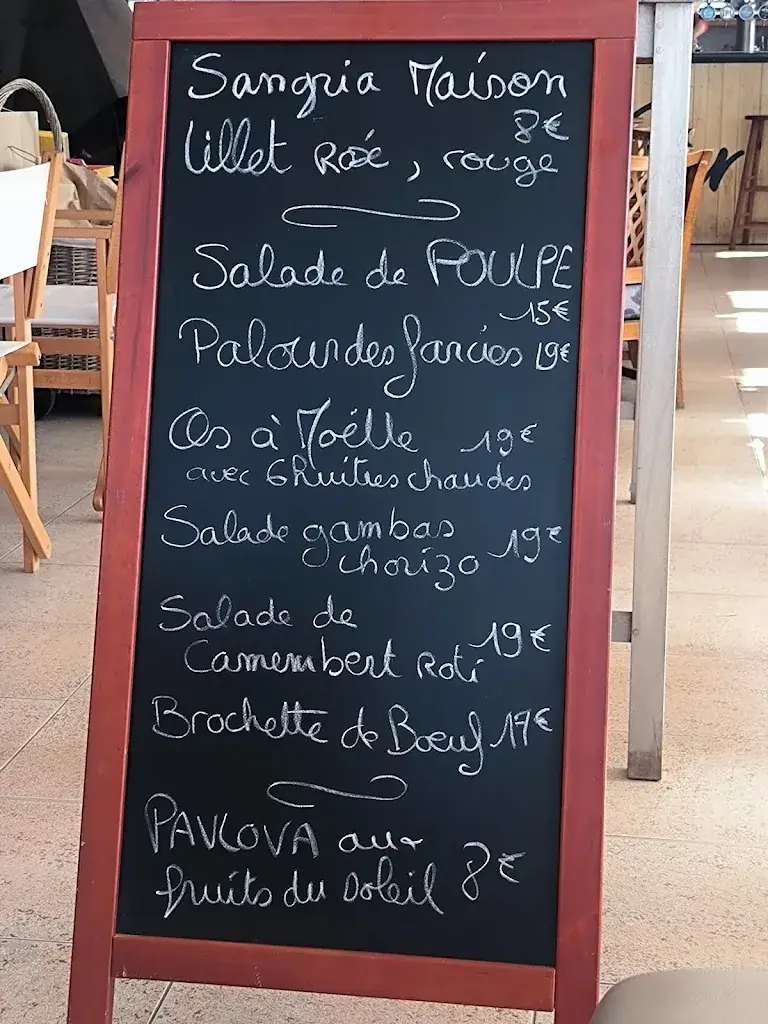 Sangria Maison
8€
Lillet Rosé, rouge
Salade de POULPE
15€
Palourdes farcies 19€
Os à Moëlle 19€
avec 6 huitres chaudes
Salade gambas
chorizo 19€
Salade de
Camembert Roti 19€
Brochette de Boeuf 17€
PAVLOVA aux
fruits du soleil 8€